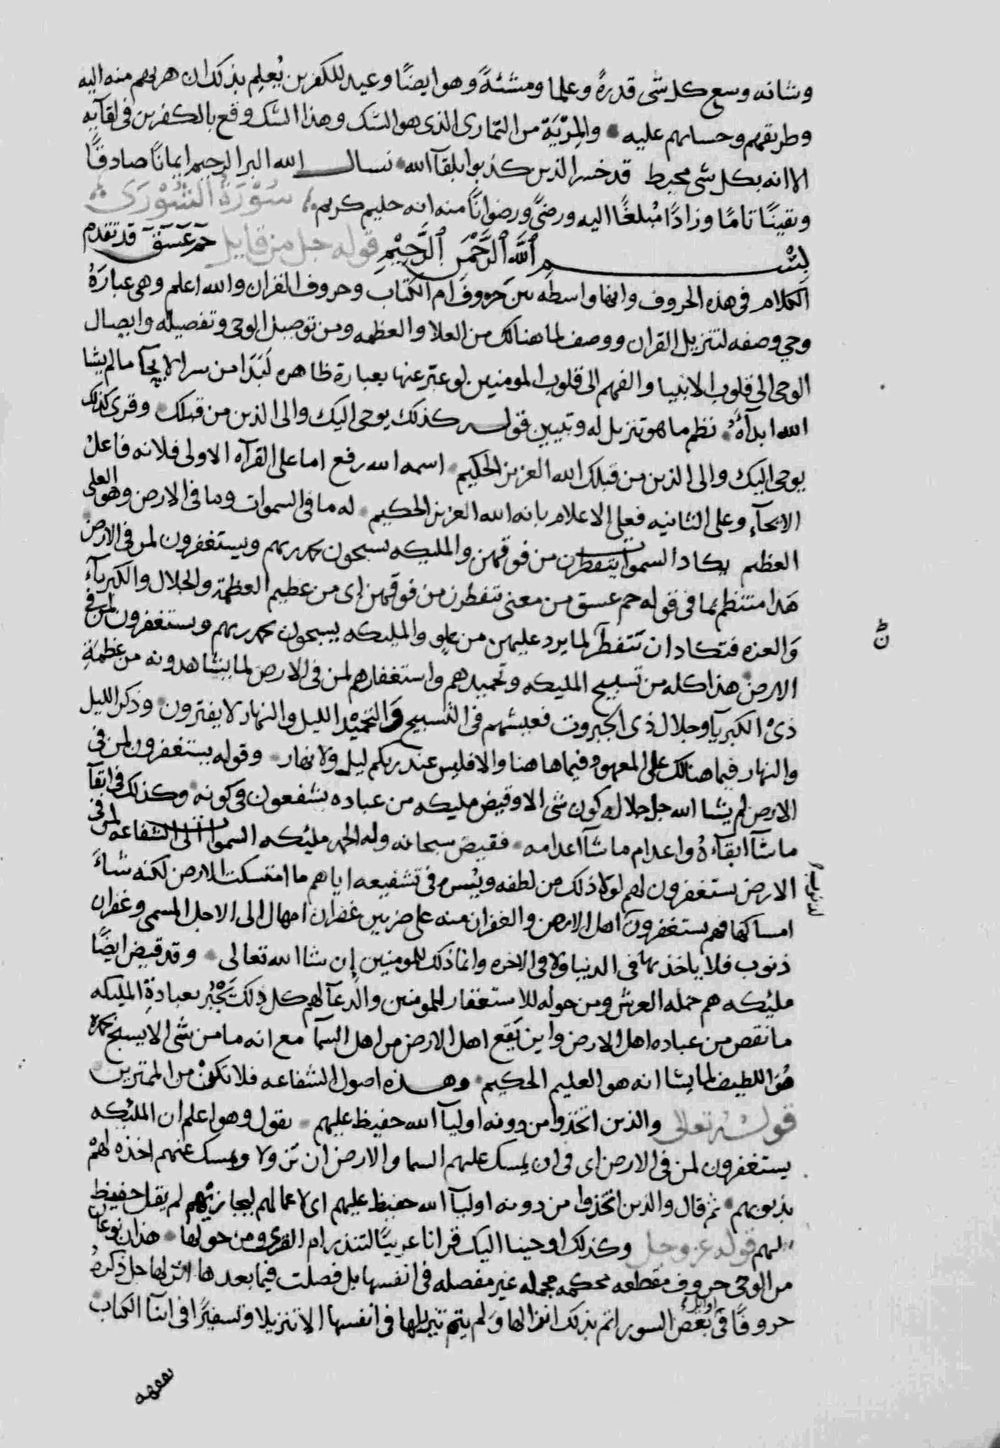 وشانه وسع كل شى قدرةً وعلما ومشئةً وهو ايضًا وعيد للكفرين يُعلم بذلك ان هربهم منه اليه
وطريقهم وحسابهم عليه والمِرْيَة من التمارى الذى هو الشك وهذا الشك وقع بالكفرين فى لقآيه
الا انه بكل شى محيط قد خسر الذين كذبوا بلقآ الله نسال الله البر الرحيم ايمانًا صادقًا
ويقينًا تامًا وزادًا مُبلغًا اليه ورضىً ورضوانًا منه انه حليم كريم سُوْرَةُ الشُوْرَى
بِسْمِ ٱللَّهِ ٱلرَّحْمَنِ ٱلرَّحِيْمِ قوله جل من قايل حمٓ عٓسٓقٓ قد تقدم
الكلام فى هذه الحروف وانها واسطه بين حروف ام الكتاب وحروف القران والله اعلم وهى عبارَةُ
وحي وصفه لتنزيل القران ووصف لما هنالك من العلا والعظمه ومن توصيل الوحى وتفصيله وايصال
الوحى الى قلوب الانبيا والفهم الى قلوب المومنين لو عبّر عنها بعبارة ظاهره لَبَدَا من سر الايحآ ما لم يشا
الله ابدآهُ نظم ما هو تنزيل له وتبيين قوله كذلك يوحى اليك والى الذين من قبلك وقرى كذلك
يوحى اليك والى الذين من قبلك الله العزيز الحكيم اسمه الله رفع اما على القرآه الاولى فلانه فاعل
الايحآء وعلى الثانيه فعلى الاعلام بانه الله العزيز الحكيم له ما فى السموات وما فى الارض وهو العلى
العظيم يكاد السموات يتفطرن من فوقهن والمليكه يسبحون بحمد ربهم ويستغفرون لمن فى الارض
هَذا منتظم بما فى قوله حم عسق من معنى تتفطرن من فوقهن اى من عظيم العظمة والجلال والكبريآء
وَالعزه فتكاد ان تتفطر لما يرد عليهن من علو والمليكه يسبحون بحمد ربهم ويستغفرون لمن فى
الارض هذا كله من تسبيح المليكه وتحميدهم واستغفارهم لمن فى الارض لما يشاهدونه من عظمة
ذى الكبريآ وجلال ذى الجبروت فعيشهم فى التسبيح وَالتحميْد الليل والنهار لا يفترون وذكر الليل
والنهار فيما هنالك على المعهود فيما هاهنا والا فليس عند ربكم ليل ولا نهار وقوله يستغفرون لمن فى
الارض لم يشا الله جل جلاله كون شى الا وقيض مليكه من عباده يشفعون فى كونه وكذلك فى ابقآ
ما شآ ابقآءهُ واعدام ما شآ اعدامه فقيض سبحانه وله الحمد مليكه السموات الى الشفاعه لمن فى
الارض يستغفرون لهم لولا ذلك من لطفه في تشفيعه اياهم ما امتسكت الارض لكنه شاءَ
امساكها فهم يستغفرون اهل الارض والغفران منه على ضربين غفران امهال الى الاجل المسمى وغفران
ذنوب فلا ياخذ بها فى الدنيا ولا فى الاخره وانما ذلك للمومنين إن شا الله تعالى وقد قيض ايضًا
مليكه هم حمله العرش ومن حوله للاستغفار للمومنين والدعآ لهم كل ذلك تَجْبُر بعبادة المليكه
ما نقص من عباده اهل الارض واين يَقَع اهل الارض من اهل السمآ مع انه ما من شى الا يسبح بحمده
هُوَ اللطيف لما يشا انه هو العليم الحكيم وهذه اصول الشفاعه فلا تكونْ من الممترين
قوله تعالى والذين اتخذوا من دونه اوليآ الله حفيظ عليهم يقول وهو اعلم ان المليكه
يستغفرون لمن فى الارض اى فى ان يمسك عليهم السما والارض ان تزولا ويمسك عنهم اخذه لهم
بذنوبهم ثم قال والذين اتخذوا من دونه اوليآ الله حفيظ عليهم اى لاعمالهم ليجازيهم لم يقل حفيظ
لهم قوله عز وجل وكذلك اوحينا اليك قرانا عربيًا لتنذر ام القرى ومن حولها هذان نوعان
من الوحى حروف مقطعه محكمه مجمله غير مفصله فى انفسها بل فصلت فيما بعدها انزلها جل ذكرهُ
حروفًا فى اوايل بَعْض السور اتم بذلك انزالها وَلم يتم تنزيلها فى انفسها الا تنزيلا وتسفيرًا فى اثنآ الكتاب